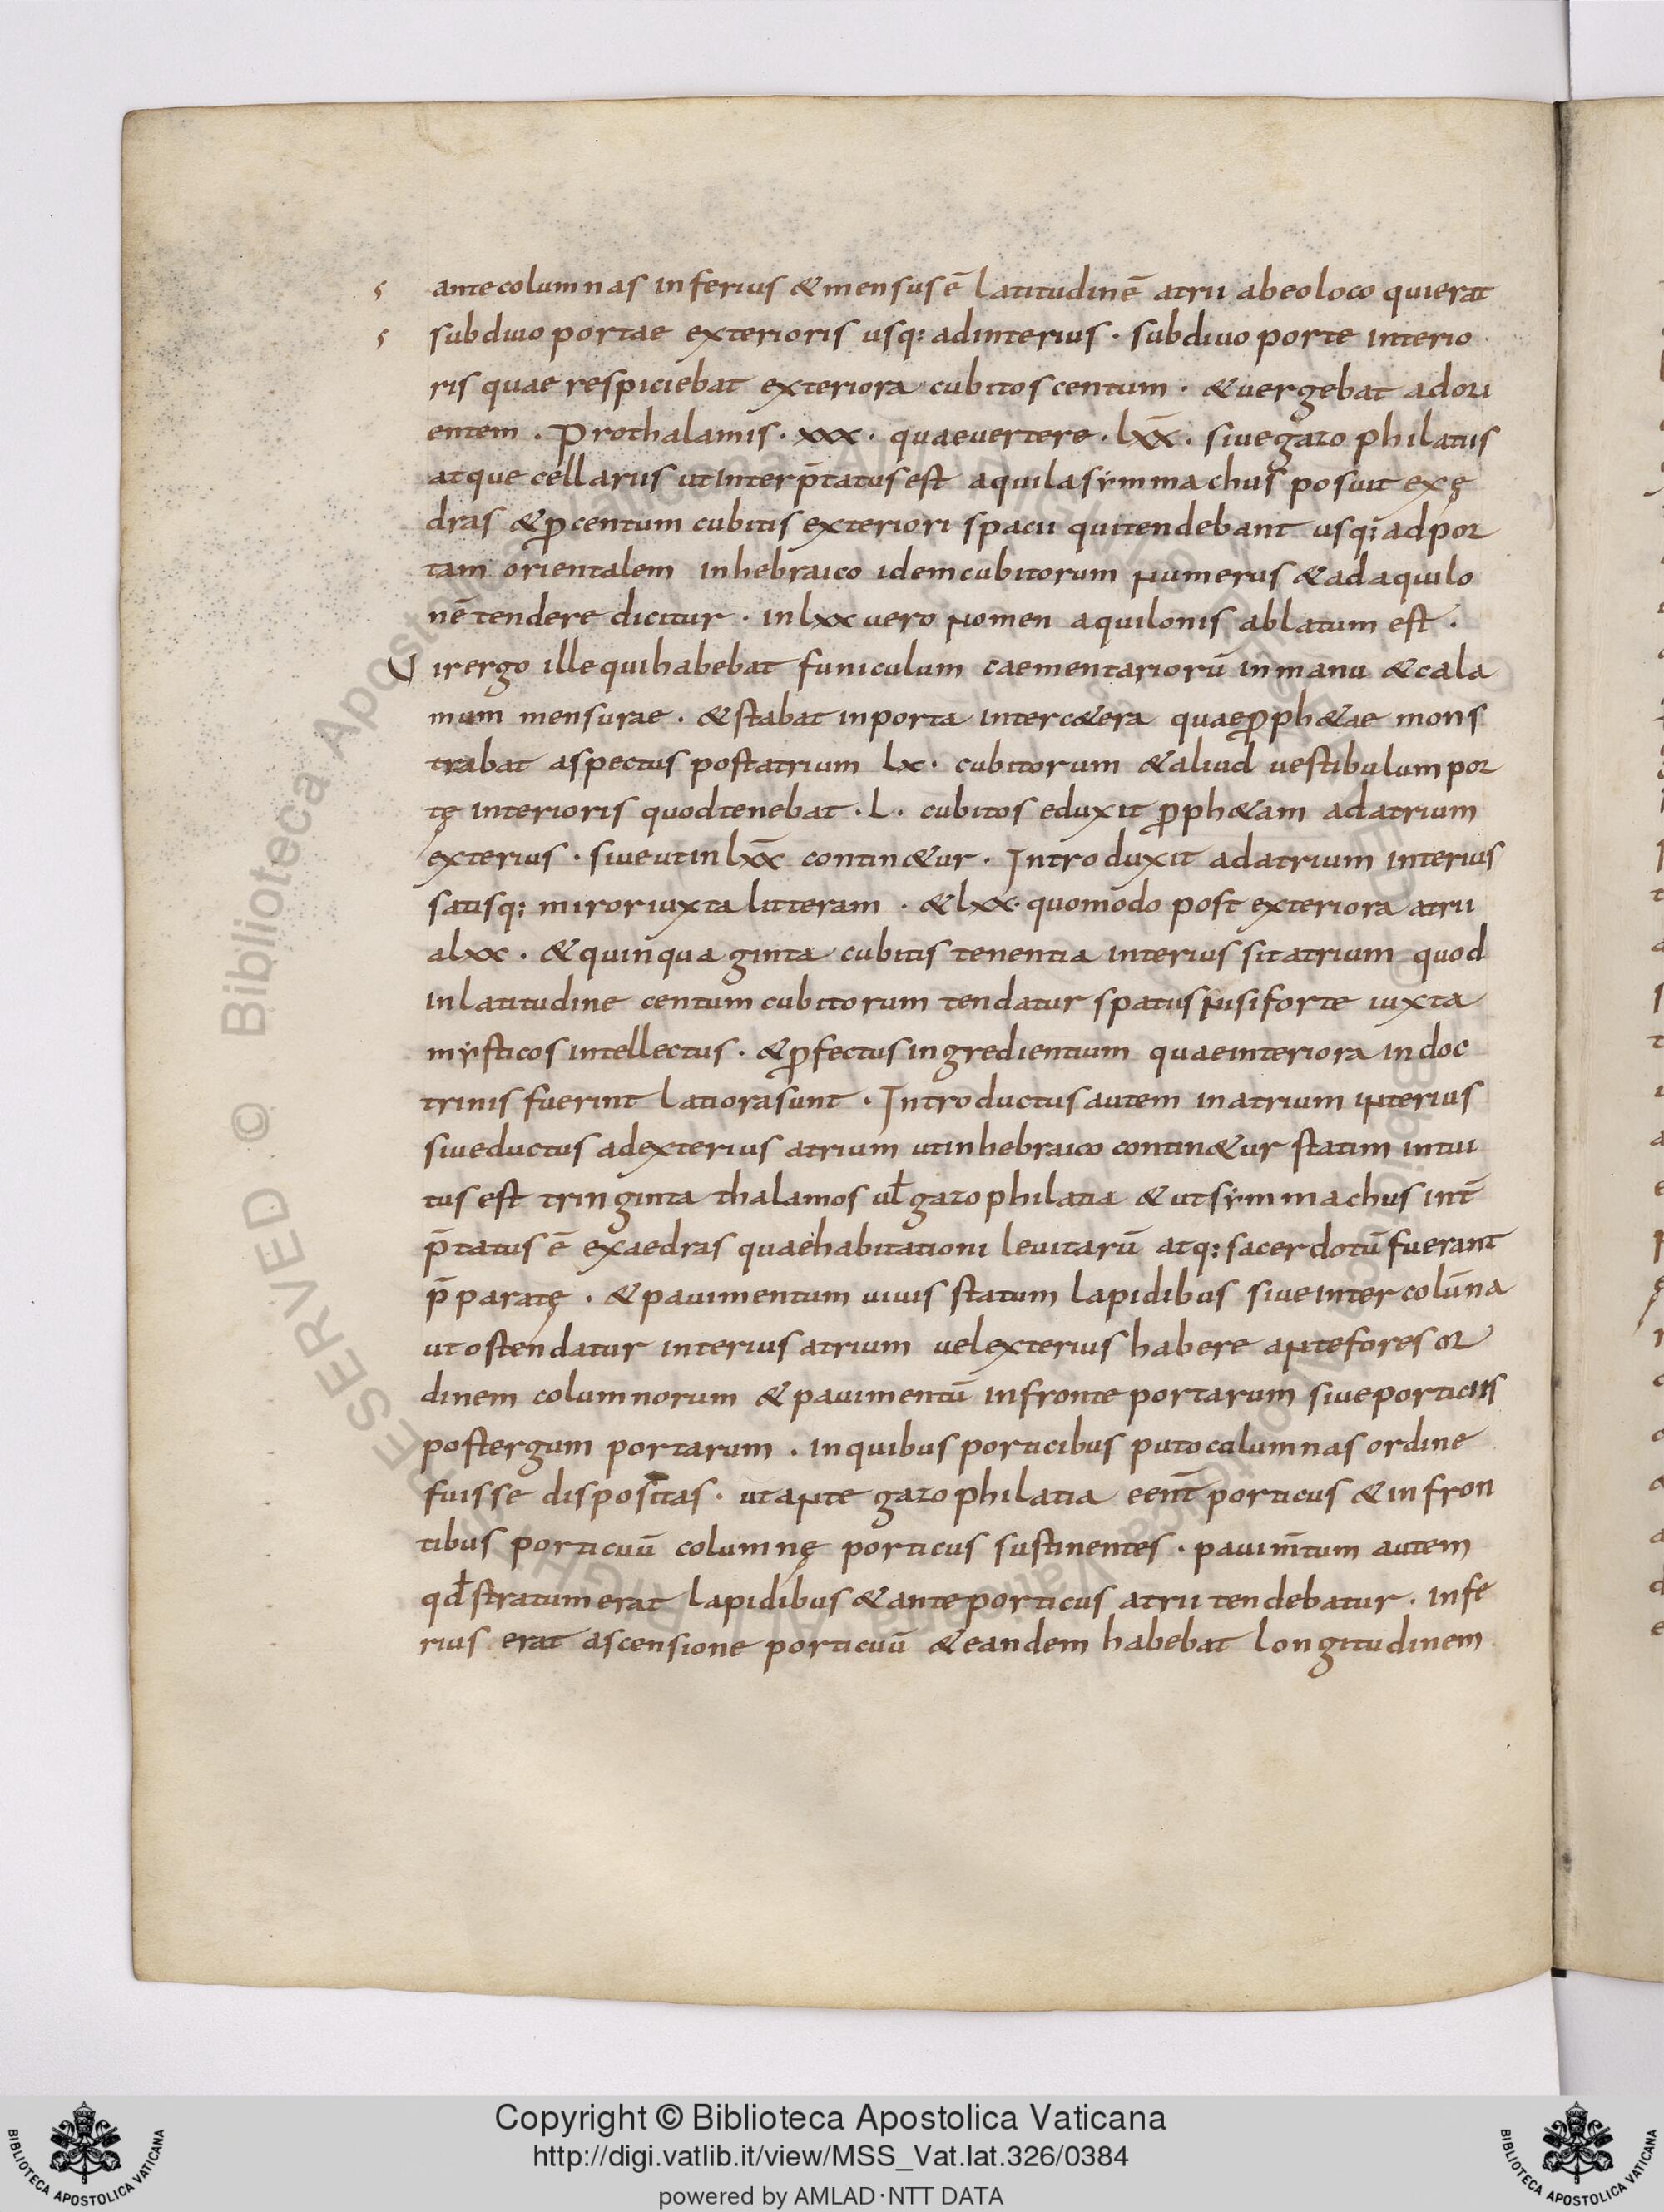 ante columnas inferius & mensus ē latitudinē atrii ab eo loco qui erat
sub diuo portae exterioris usq: ad interius · sub diuo porte interio
ris quae respiciebat exteriora cubitos centum · & uergebat ad ori
entem . Pro thalamis · xxx · quae uertere · lxx̄ · siue gazophilatiis
atque cellariis ut interp̄tatus est aquila sẏmmachus posuit exę
dras & ꝓ centum cubitis exteriori spacii qui tendebant usq: ad por
tam orientalem in hebraico idem cubitorum numerus & ad aquilo
nē tendere dicitur · in lxx uero nomen aquilonis ablatum est .
Uir ergo ille qui habebat funiculum caementariorū in manu & cala
mum mensurae . & stabat in porta inter c&era quae ꝓph&ae mons
trabat aspectus post atrium lx · cubitorum & aliud uestibulum por
tę interioris quod tenebat · L · cubitos eduxit ꝓph&am ad atrium
exterius · siue ut in lxx̄ contin&ur · Introduxit ad atrium interius
satisq: miror iuxta litteram · & lxx · quomodo post exteriora atrii
a lxx · & quinquaginta cubitis tenentia interius sit atrium quod
in latitudine centum cubitorum tendatur spatus nisi forte iuxta
mẏsticos intellectus · & ꝓfectus ingredientium quae interiora in doc
trinis fuerint latiora sunt · Introductus autem in atrium interius
siue ductus ad exterius atrium ut in hebraico contin&ur statim intui
tus est tringinta thalamos ul̄ gazophilatia & ut sẏmmachus int̄
p̄tatus ē exaedras quae habitationi leuitarū atq: sacerdotū fuerant
p̄paratę . & pauimentum uiuis statum lapidibus siue inter colūna
ut ostendatur interius atrium uel exterius habere ante fores or
dinem columnorum & pauimentū in fronte portarum siue porticus
post ergum portarum . in quibus porticibus puto calumnas ordine
fuisse dispositas · ut ante gazophilatia een̄t porticus & in fron
tibus porticuū columnę porticus sustinentes · pauim̄tum autem
qd̄ stratum erat lapidibus & ante porticus atrii tendebatur · infe
rius erat ascensione porticuū & eandem habebat longitudinem
Copyright © Biblioteca Apostolica Vaticana
http://digi.vatlib.it/view/MSS_Vat.lat.326/0384
powered by AMLAD·NTT DATA
BIBLIOTECA APOSTOLICA VATICANA
BIBLIOTECA APOSTOLICA VATICANA